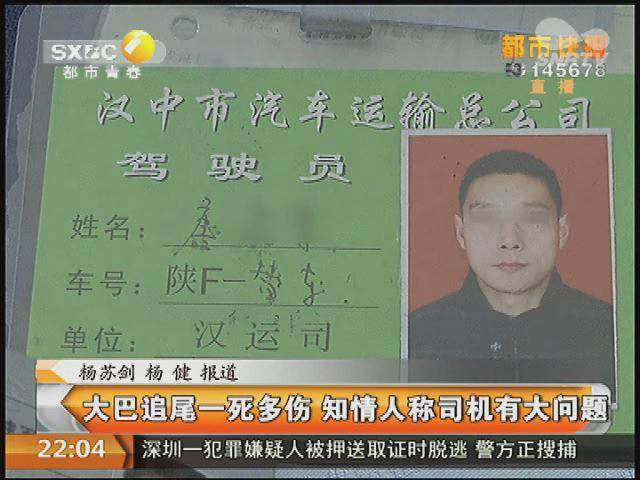 SXBC
都市青春
都市快报
145678
直播
汉中市汽车运输总公司
驾驶员
姓名：
车号：陕F-
单位：汉运司
杨苏剑 杨 健 报道
大巴追尾一死多伤 知情人称司机有大问题
22:04 深圳一犯罪嫌疑人被押送取证时脱逃 警方正搜捕